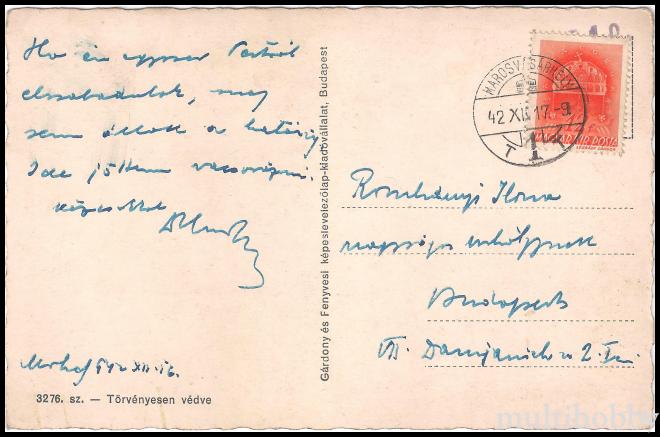 Ha én egyszer Pestről
elszabadulok, meg
sem állok a határig
Ide jöttem vacsorázni.
kézcsókkal
Mvhely 942 XII. 16.
3276. sz. — Törvényesen védve
Gárdony és Fenyvesi képeslevelezőlap-kiadóvállalat, Budapest
MAROSVÁSÁRHELY
42 XII. 17.-9
T 1
MAGYAR KIR. POSTA
Romhányi Ilona
nagyságos úrhölgynek
Budapest
VII. Damjanich u 2. I em.
multihobby